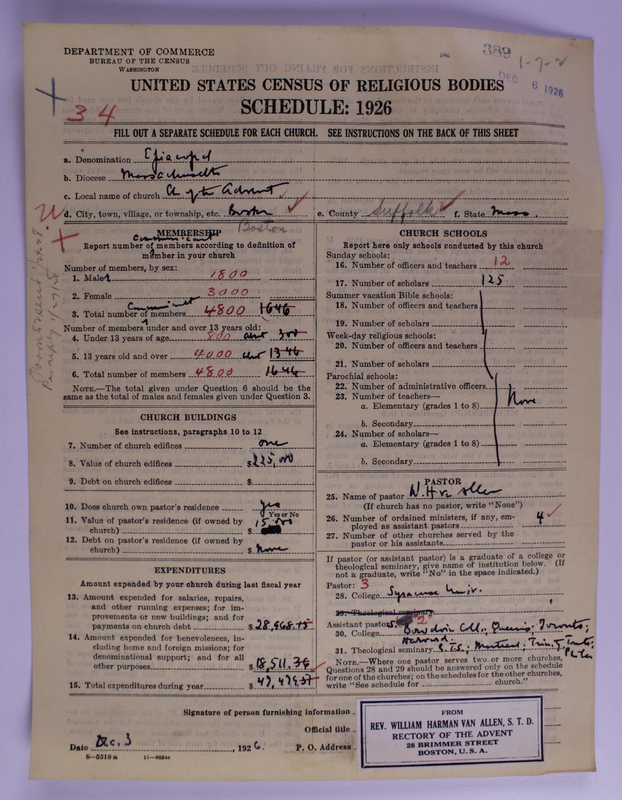 DEPARTMENT OF COMMERCE
BUREAU OF THE CENSUS
WASHINGTON
389 1-7-2
DEC 6 1926
UNITED STATES CENSUS OF RELIGIOUS BODIES
SCHEDULE: 1926
34
FILL OUT A SEPARATE SCHEDULE FOR EACH CHURCH. SEE INSTRUCTIONS ON THE BACK OF THIS SHEET
a. Denomination Episcopal
b. Diocese Massachusetts
c. Local name of church Ch of the Advent
d. City, town, village, or township, etc. Boston e. County Suffolk f. State Mass.
Boston
MEMBERSHIP
communicant
Report number of members according to definition of
member in your church
Number of members, by sex:
1. Male 1800
2. Female 3000
Communicant
3. Total number of members 4800 1646
Number of members under and over 13 years old:
4. Under 13 years of age 800 abt 300
5. 13 years old and over 4000 abt 1346
6. Total number of members 4800 1646
NOTE.—The total given under Question 6 should be
same as the total of males and females given under Question 3.
CHURCH BUILDINGS
See instructions, paragraphs 10 to 12
7. Number of church edifices one
8. Value of church edifices $225,000
9. Debt on church edifices $
10. Does church own pastor's residence yes
Yes or No
11. Value of pastor's residence (if owned by
church) $ 15,000
12. Debt on pastor's residence (if owned by
church) $ None
EXPENDITURES
Amount expended by your church during last fiscal year
13. Amount expended for salaries, repairs,
and other running expenses; for im-
provements or new buildings; and for
payments on church debt $28,968.
14. Amount expended for benevolences, in-
cluding home and foreign missions; for
denominational support; and for all
other purposes $18,511.
15. Total expenditures during year $47,479
CHURCH SCHOOLS
Report here only schools conducted by this church
Sunday schools:
16. Number of officers and teachers 12
17. Number of scholars 125
Summer vacation Bible schools:
18. Number of officers and teachers
19. Number of scholars
Week-day religious schools:
20. Number of officers and teachers
21. Number of scholars
Parochial schools:
22. Number of administrative officers
23. Number of teachers—
a. Elementary (grades 1 to 8) None
b. Secondary
24. Number of scholars—
a. Elementary (grades 1 to 8)
b. Secondary
PASTOR
25. Name of pastor W. H. van Allen
(If church has no pastor, write "None")
26. Number of ordained ministers, if any, em-
ployed as assistant pastors 4
27. Number of other churches served by the
pastor or his assistants
If pastor (or assistant pastor) is a graduate of a college or
theological seminary, give name of institution below. (If
not a graduate, write "No" in the space indicated.)
Pastor: 3
28. College Syracuse Univ.
29. Theological seminary
Assistant pastor: 2
30. College Bowdoin Coll.; Queens; Toronto;
Harvard.
31. Theological seminary E.T.S.; Montreal; Trinity Toronto;
NOTE.—Where one pastor serves two or more churches,
Questions 28 and 29 should be answered only on the schedule
for one of the churches; on the schedules for the other churches,
write "See schedule for church."
Signature of person furnishing information
Official title
Date Dec. 3, 1926. P. O. Address
8-5518a 11-9664
FROM
REV. WILLIAM HARMAN VAN ALLEN, S. T. D.
RECTORY OF THE ADVENT
28 BRIMMER STREET
BOSTON, U. S. A.